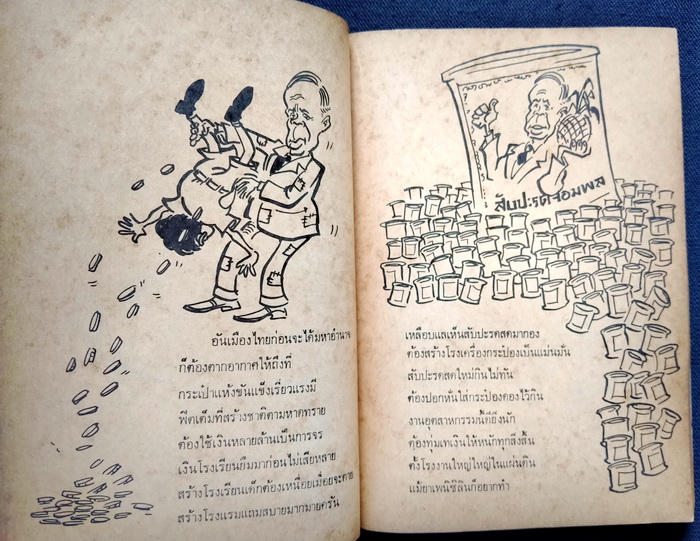 อันเมืองไทยก่อนจะได้มหาอำนาจ
ก็ต้องตากอากาศให้ถึงที่
กระเป๋าแห้งขันแข็งเรี่ยวแรงมี
ฟิตเต็มที่สร้างชาติตามหาดทราย
ต้องใช้เงินหลายล้านเป็นการจร
เงินโรงเรียนยืมมาก่อนไม่เสียหลาย
สร้างโรงเรียนเด็กต้องเหนื่อยเมื่อยจะตาย
สร้างโรงแรมแถมสบายมากมายครัน
สับปะรดจอมพล
เหลือบแลเห็นสับปะรดสดมากอง
ต้องสร้างโรงเครื่องกระป๋องเป็นแม่นมั่น
สับปะรดสดใหม่กินไม่ทัน
ต้องปอกหั่นใส่กระป๋องดองไว้กิน
งานอุตสาหกรรมนี้ดียิ่งนัก
ต้องทุ่มเทเงินให้หนักทุกสิ่งสิ้น
ตั้งโรงงานใหญ่ใหญ่ในแผ่นดิน
แม้ยาเพนิซิลินก็อยากทำ